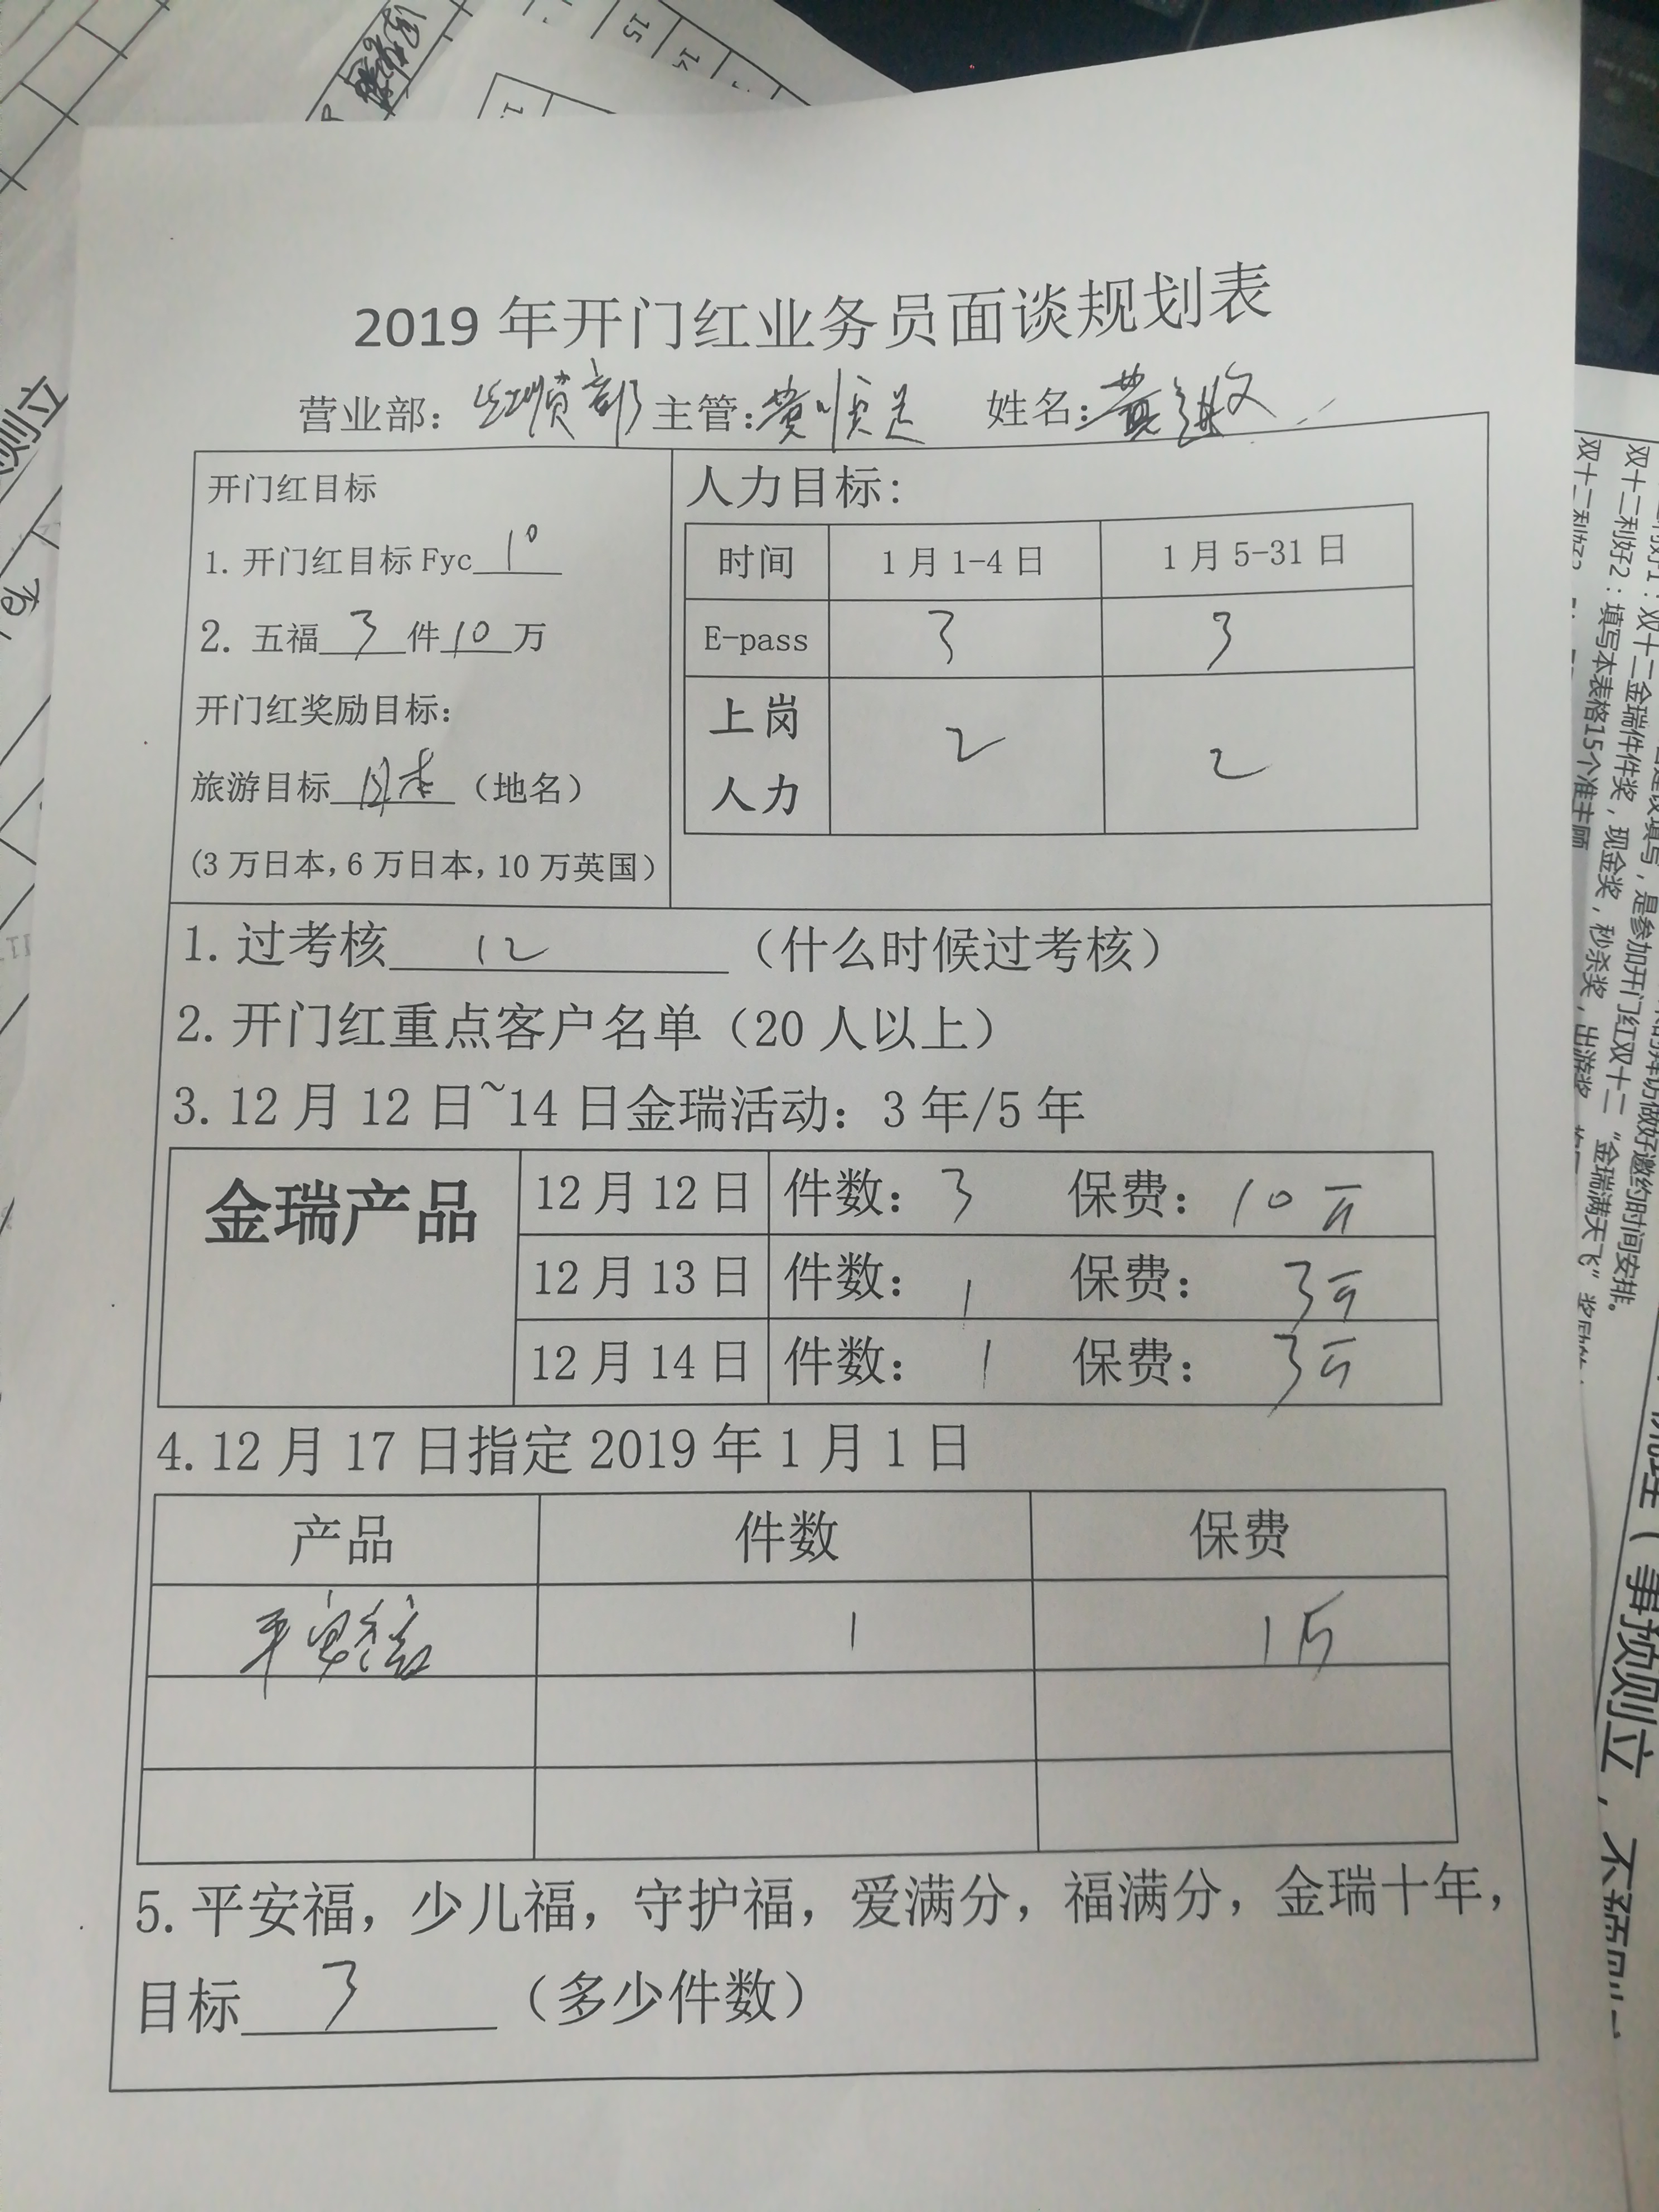 2019年开门红业务员面谈规划表
营业部：红顺部 主管：黄顺送 姓名：黄
开门红目标
1. 开门红目标 Fyc 10
2. 五福 3 件 10 万
开门红奖励目标：
旅游目标 日本（地名）
(3万日本，6万日本，10万英国）
人力目标：
时间 1月1-4日 1月5-31日
E-pass 3 3
上岗人力 2 2
1. 过考核 12 （什么时候过考核）
2. 开门红重点客户名单（20人以上）
3. 12月12日~14日金瑞活动：3年/5年
金瑞产品 12月12日 件数：3 保费：10万
12月13日 件数：1 保费：3万
12月14日 件数：1 保费：3万
4. 12月17日指定2019年1月1日
产品 件数 保费
平安福 1 1万
5. 平安福，少儿福，守护福，爱满分，福满分，金瑞十年，
目标 3 （多少件数）
双十二利好2：填写本表格15个准主顾
双十二金瑞件件奖，现金奖，秒杀奖，出游奖
是参加开门红双十二“金瑞满天飞”
做好邀约时间安排。
（事预则立，不
则立
15
14